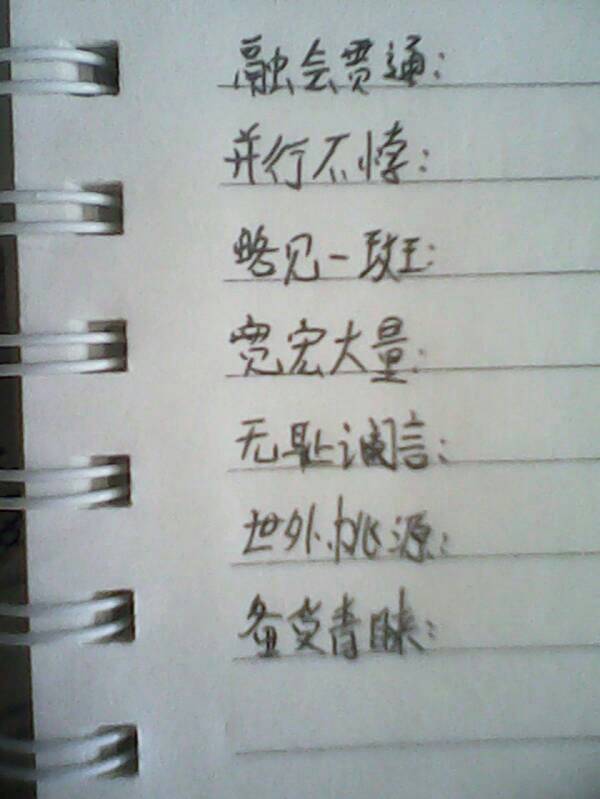 融会贯通:
并行不悖:
略见一班:
宽宏大量:
无耻谰言:
世外桃源:
备受青睐: